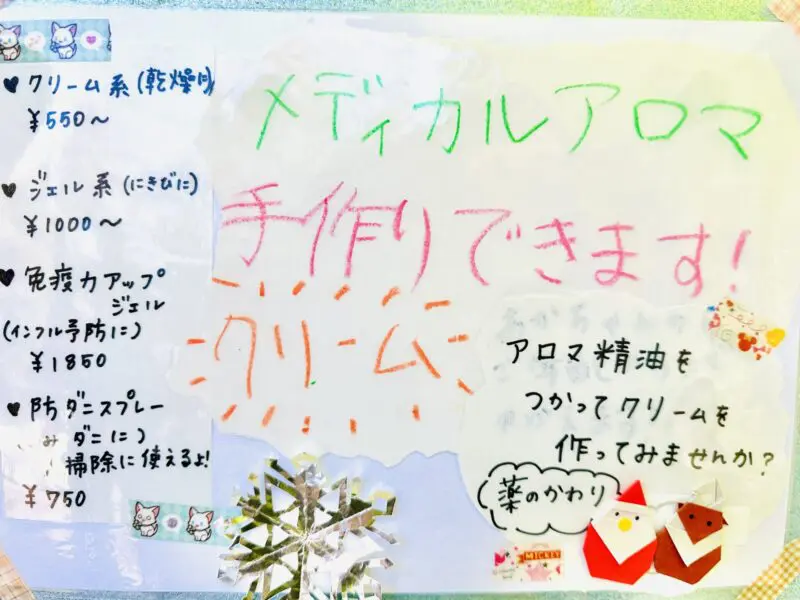 メディカルアロマ
手作りできます!
クリーム
♥クリーム系(乾燥用)
¥550〜
♥ジェル系(にきびに)
¥1000〜
♥免疫力アップ
ジェル
(インフル予防に)
¥1850
♥防ダニスプレー
ダニに)
掃除に使えるよ!
¥750
アロマ精油を
つかってクリームを
作ってみませんか?
薬のかわり
MICKEY